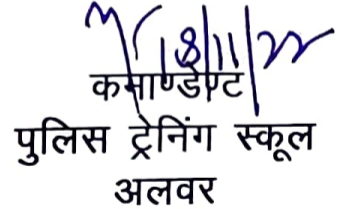 18/11/22
कमाण्डेण्ट
पुलिस ट्रेनिंग स्कूल
अलवर